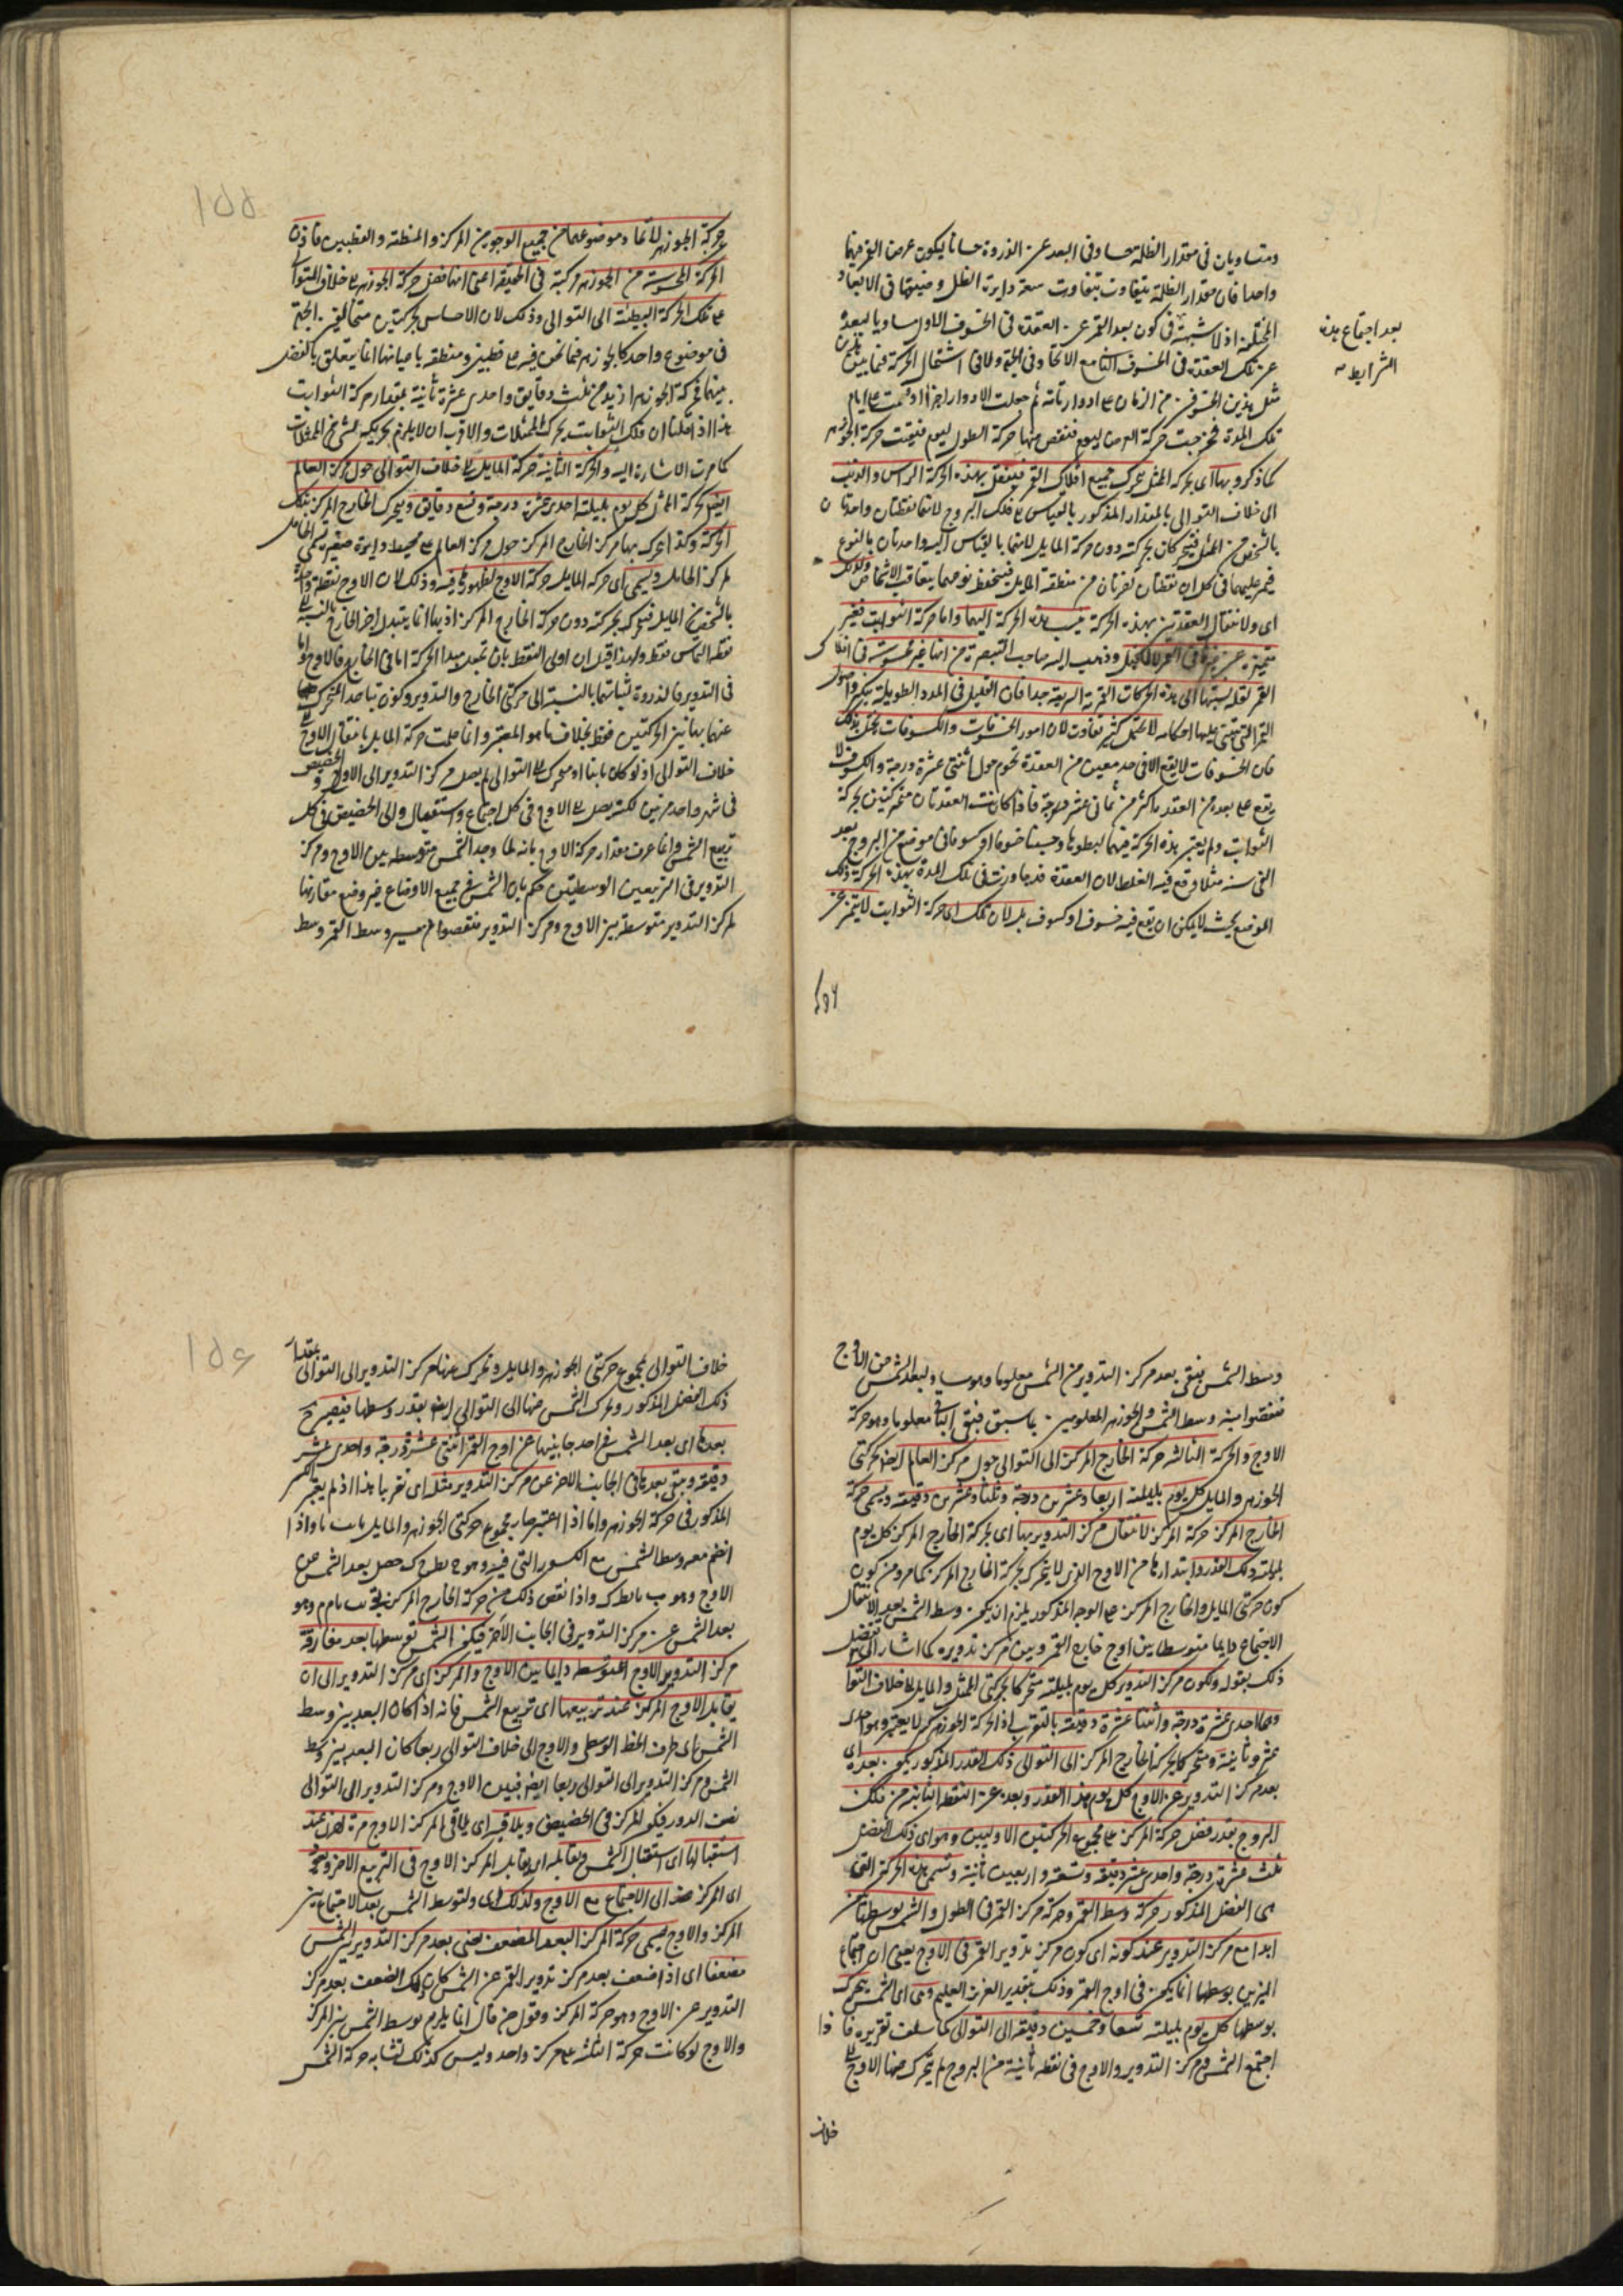 ومتساويان فى مقدار الظلمة وفى البعد عن الذروة حسابا ليكون عرض القمر فيها
واحدا فان مقدار الظلمة يتفاوت بتفاوت سعة دايرة الظل وضيقها فى الابعاد
المختلفة اذ لا شبهة فى كون بعد القمر عن العقدة فى الخسوف الاول مساويا لبعده
بعد اجتماع هذه
الشرايط
عن تلك العقدة فى الخسوف الثانى مع الاتحاد فى الجهة ولا فى اشتمال الحركة فيما بين
مثل هذين الخسوفين من الزمان على ادوار تامة ثم جعلت الادوار اجزاء وقسمت على ايام
تلك المدة فخرجت حركة العرض ليوم فنقص منها حركة الطول ليوم فبقيت حركة الجوزهر
كما ذكر وبها اى بحركة الممثل يتحرك جميع افلاك القمر فينتقل بهذه الحركة الراس والذنب
الى خلاف التوالى بالمقدار المذكور بالقياس الى فلك البروج لانهما نقطتان واحدتان
بالشخص من الممثل فيتحركان بحركته دون حركة المايل لانهما بالقياس اليه واحدتان بالنوع
فيمر عليهما فى كل ان نقطتان اخريان من منطقة المايل فينحفظ نوعهما بتعاقب الاشخاص ولذلك
اى ولانتقال العقدتين بهذه الحركة ينسب هذه الحركة اليهما واما حركة الثوابت فغير
متميزة عن غيرها فى القمر وذهب اليه صاحب التبصرة من انها غير محسوسة فى افلاك
القمر لقلة نسبتها الى هذه الحركات القمرية السريعة جدا فان القليل فى المدد الطويلة يكثر واحوال
القمر التى تبتنى عليها احكامه لا تحتمل كثير تفاوت لان امور الخسوفات والكسوفات تختل بذلك
فان الخسوفات لا يقع الا فى حد معين من العقدة نحو من اثنتى عشرة درجة والكسوف لا
يقع على بعد من العقدة اكثر من ثمانى عشر درجة فاذا كانت العقدتان متحركتين بحركة
الثوابت ولم يعتبر هذه الحركة فيهما لبطوئها وحسبنا خسوفا او كسوفا فى موضع من البروج بعد
الفى سنة مثلا وقع فيه الغلط لان العقدة قد جاوزت فى تلك المدة بهذه الحركة ذلك
الموضع بحيث لا يمكن ان يقع فيه خسوف او كسوف بل لان تلك اى حركة الثوابت لا يتميز عن
١٥٥
حركة الجوزهر لاتحاد موضوعهما من جميع الوجوه من المركز والمنطقة والقطبين فاذن
الحركة المحسوسة من الجوزهر مركبة فى الحقيقة اعنى انها فضل حركة الجوزهر على خلاف التوالى
على تلك الحركة البطيئة الى التوالى وذلك لان الاحساس بحركتين متخالفتى الجهة
فى موضوع واحد كالجوزهر فيما نحن فيه على قطبين ومنطقة باعيانها انما يتعلق بالفضل
بينهما فحركة الجوزهر ازيد من ثلث دقايق واحدى عشرة ثانية بمقدار حركة الثوابت
هذا اذا قلنا ان فلك الثوابت يحرك الممثلات والاقرب ان لا يلزم تحريكه لشئ من الممثلات
كما مرت الاشارة اليه والحركة الثانية حركة المايل على خلاف التوالى حول مركز العالم
ايضا كحركة الممثل كل يوم بليلته احدى عشرة درجة وتسع دقايق ويتحرك الخارج المركز بتلك
الحركة وكذا يتحرك بها مركز الخارج المركز حول مركز العالم على محيط دايرة صغيرة تسمى الحامل
لمركز الحامل ويسمى اى حركة المايل حركة الاوج لظهورها فيه وذلك لان الاوج نقطة واحدة
بالشخص من المايل فيتحرك بحركته دون حركة الخارج المركز اذ بها انما يتبدل اجزاء الخارج بالنسبة الى
نقطة التماس فقط ولهذا قيل ان اولى النقط بان تجعل مبدأ الحركة اما فى الخارج فالاوج واما
فى التدوير فالذروة لثباتهما بالنسبة الى حركتى الخارج والتدوير وكون تباعد المتحرك
عنهما بهاتين الحركتين فقط بخلاف ما هو المعتبر وانما علمت حركة المايل بانتقال الاوج الى
خلاف التوالى اذ لو كان ثابتا او متحركا الى التوالى لم يصل مركز التدوير الى الاوج والحضيض
فى شهر واحد مرتين لكنه يصل الى الاوج فى كل اجتماع واستقبال والى الحضيض فى كل
تربيع الشمس وانما عرف مقدار حركة الاوج بانه لما وجد الشمس متوسطة بين الاوج ومركز
التدوير فى التربيعين الوسطيين حكم بان الشمس فى جميع الاوضاع غير وضع مقارنتها
لمركز التدوير متوسطة بين الاوج ومركز التدوير فنقصوا من مسير وسط القمر وسط
وسط الشمس بقى بعد مركز التدوير من الشمس معلوما وهو مساو لبعد الشمس من الاوج
فنقصوا منه وسط الشمس والجوزهر المعلومين بما سبق فبقى الباقى معلوما وهو حركة
الاوج والحركة الثالثة حركة الخارج المركز الى التوالى حول مركز العالم ايضا كحركتى
الجوزهر والمايل كل يوم بليلته اربعا وعشرين درجة وثلثا وعشرين دقيقة ويسمى حركة
الخارج المركز حركة المركز لانتقال مركز التدوير بها اى بحركة الخارج المركز كل يوم
بليلته ذلك القدر وابتداؤها من الاوج الذى لا يتحرك بحركة الخارج المركز كما مر ومن كون
كون حركتى المايل والخارج المركز على الوجه المذكور يلزم ان يكون وسط الشمس بعد الانتقال
الاجتماع دايما متوسطا بين اوج خارج القمر وبين مركز تدويره كما اشار الى تفصيل
ذلك بقوله ولكون مركز التدوير كل يوم بليلته متحركا بحركتى الممثل والمايل الى خلاف التوالى
وهما احدى عشرة درجة واثنتا عشرة دقيقة بالتقريب اذ الحركة الجوزهر كسر لا يعتبر وهو احدى
عشرة ثانية ومتحركا بحركة الخارج المركز الى التوالى ذلك القدر المذكور يكون بعده اى
بعد مركز التدوير عن الاوج كل يوم هذا القدر وبعده عن النقطة الثابتة من فلك
البروج بقدر فضل حركة المركز على مجموع الحركتين الاوليين وهو اى ذلك الفضل
ثلث عشرة درجة واحدى عشر دقيقة وتسعة واربعين ثانية وتسمى هذه الحركة التى
هى الفضل المذكور حركة وسط القمر وحركة مركز القمر فى الطول والشمس بوسطها تكون
ابدا مع مركز التدوير عند كونه اى كون مركز تدوير القمر فى الاوج يعنى ان اجتماع
النيرين بوسطها انما يكون فى اوج القمر وذلك بتقدير العزيز العليم وهى اى الشمس يتحرك
بوسطها كل يوم بليلته تسعا وخمسين دقيقة الى التوالى كما سلف تقريره فاذا
اجتمع الشمس ومركز التدوير والاوج فى نقطة ثابتة من البروج ثم يتحرك منها الاوج الى
خلاف
١٥٦
خلاف التوالى بمجموع حركتى الجوزهر والمايل وتحرك منها مركز التدوير الى التوالى بمقدار
ذلك الفضل المذكور وتحرك الشمس منها الى التوالى ايضا بقدر وسطها فيصير ح
بعدها اى بعد الشمس فى احد جانبيها عن اوج القمر اثنتى عشرة درجة واحدى عشر
دقيقة ويبقى بعدها فى الجانب الاخر عن مركز التدوير مثله اى تقريبا هذا اذا لم يعتبر الكسر
المذكور فى حركة الجوزهر واما اذا اعتبر صار مجموع حركتى الجوزهر والمايل واذا
انضم معه وسط الشمس مع الكسور التى فيه وهو حصل بعد الشمس عن
الاوج وهو واذا نقص ذلك من حركة الخارج المركز بقى وهو
بعد الشمس عن مركز التدوير فى الجانب الاخر فيكون الشمس بوسطها بعد مفارقة
مركز التدوير الاوج المتوسطة دايما بين الاوج والمركز اى مركز التدوير الى ان
يقابل الاوج المركز عند تربيعها اى تربيع الشمس فانه اذا كان البعد بين وسط
الشمس اى طرف الخط الوسطى والاوج الى خلاف التوالى ربعا كان البعد بين وسط
الشمس ومركز التدوير الى التوالى ربعا ايضا فبين الاوج ومركز التدوير الى التوالى
نصف الدور فيكون المركز فى الحضيض ويلاقى اى يلاقى المركز الاوج مرة اخرى عند
استقبالها اى استقبال الشمس ويقابله اى يقابل المركز الاوج فى التربيع الاخر ويعود
اى المركز عند الى الاجتماع مع الاوج ولذلك اى ولتوسط الشمس بعد الاجتماع بين
المركز والاوج يسمى حركة المركز البعد المضعف يعنى بعد مركز التدوير من الشمس
مضعفا اى اذا ضعف بعد مركز تدوير القمر عن الشمس كان ذلك الضعف بعد مركز
التدوير عن الاوج وهو حركة المركز وقول من قال انما يلزم توسط الشمس بين المركز
والاوج لو كانت حركة الثلثة على مركز واحد وليس كذلك لتشابه حركة الشمس